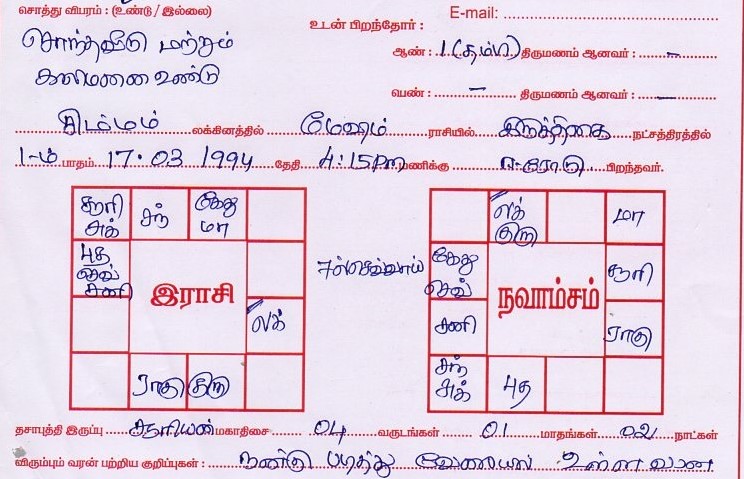 சொத்து விபரம் : (உண்டு / இல்லை) E-mail:
உடன் பிறந்தோர் :
சொந்தவீடு மற்றும் ஆண் : 1 (தம்பி) திருமணம் ஆனவர் : –
காலிமனை உண்டு
பெண் : – திருமணம் ஆனவர் : –
சிம்மம் லக்கினத்தில் மேஷம் ராசியில் கிருத்திகை நட்சத்திரத்தில்
1-ம் பாதம். 17.03 1994 தேதி 4:15 PM மணிக்கு ஈரோடு பிறந்தவர்.
சூரி சந் கேது லக்
சுக் மா குரு மா
புத கேது
செவ் 7ல் செவ்வாய் செவ் சூரி
சனி
இராசி நவாம்சம்
லக் சனி ராகு
சந்
ராகு குரு சுக் புத
தசாபுத்தி இருப்பு சூரியன் மகாதிசை 04 வருடங்கள் 01 மாதங்கள் 02 நாட்கள்
விரும்பும் வரன் பற்றிய குறிப்புகள் : நன்கு படித்து வேலையில் உள்ள வரன்